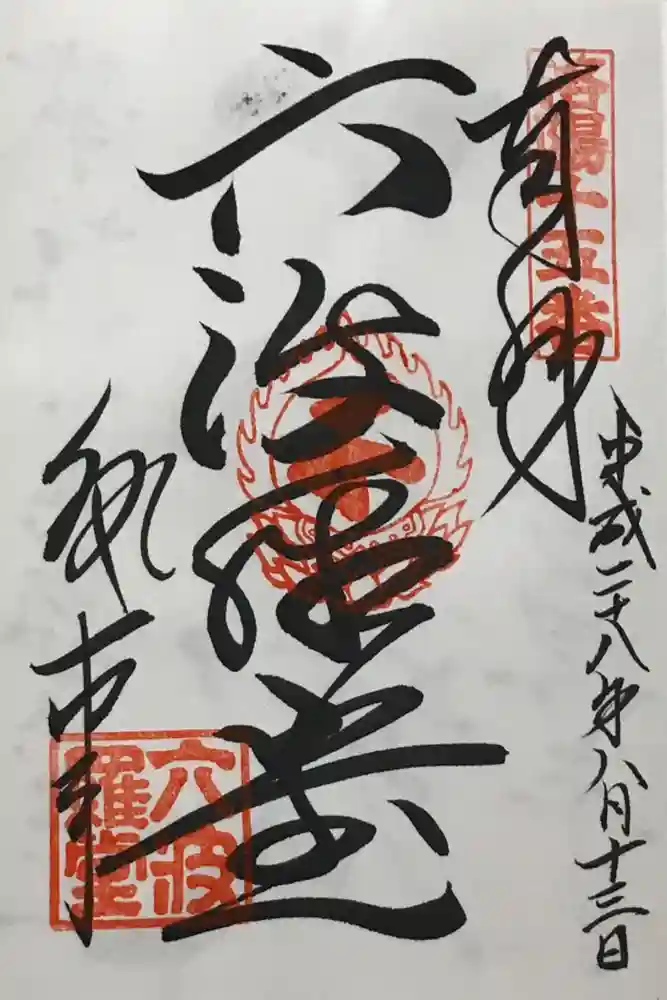 洛陽十五番
奉拝
平成二十八年八月十三日
六波羅堂
執事
六波
羅堂